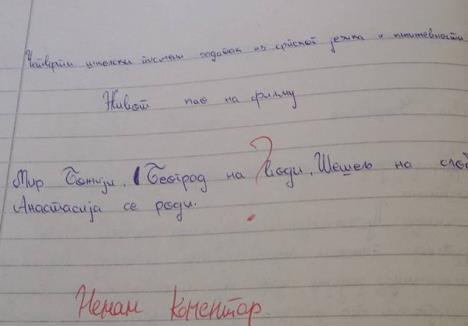 Четврти школски писмени задатак из српског језика и књижевности
Живот као на филму
Мир Божији, Београд на води, Шешељ на сло
Анастасија се роди.
?
Немам коментар